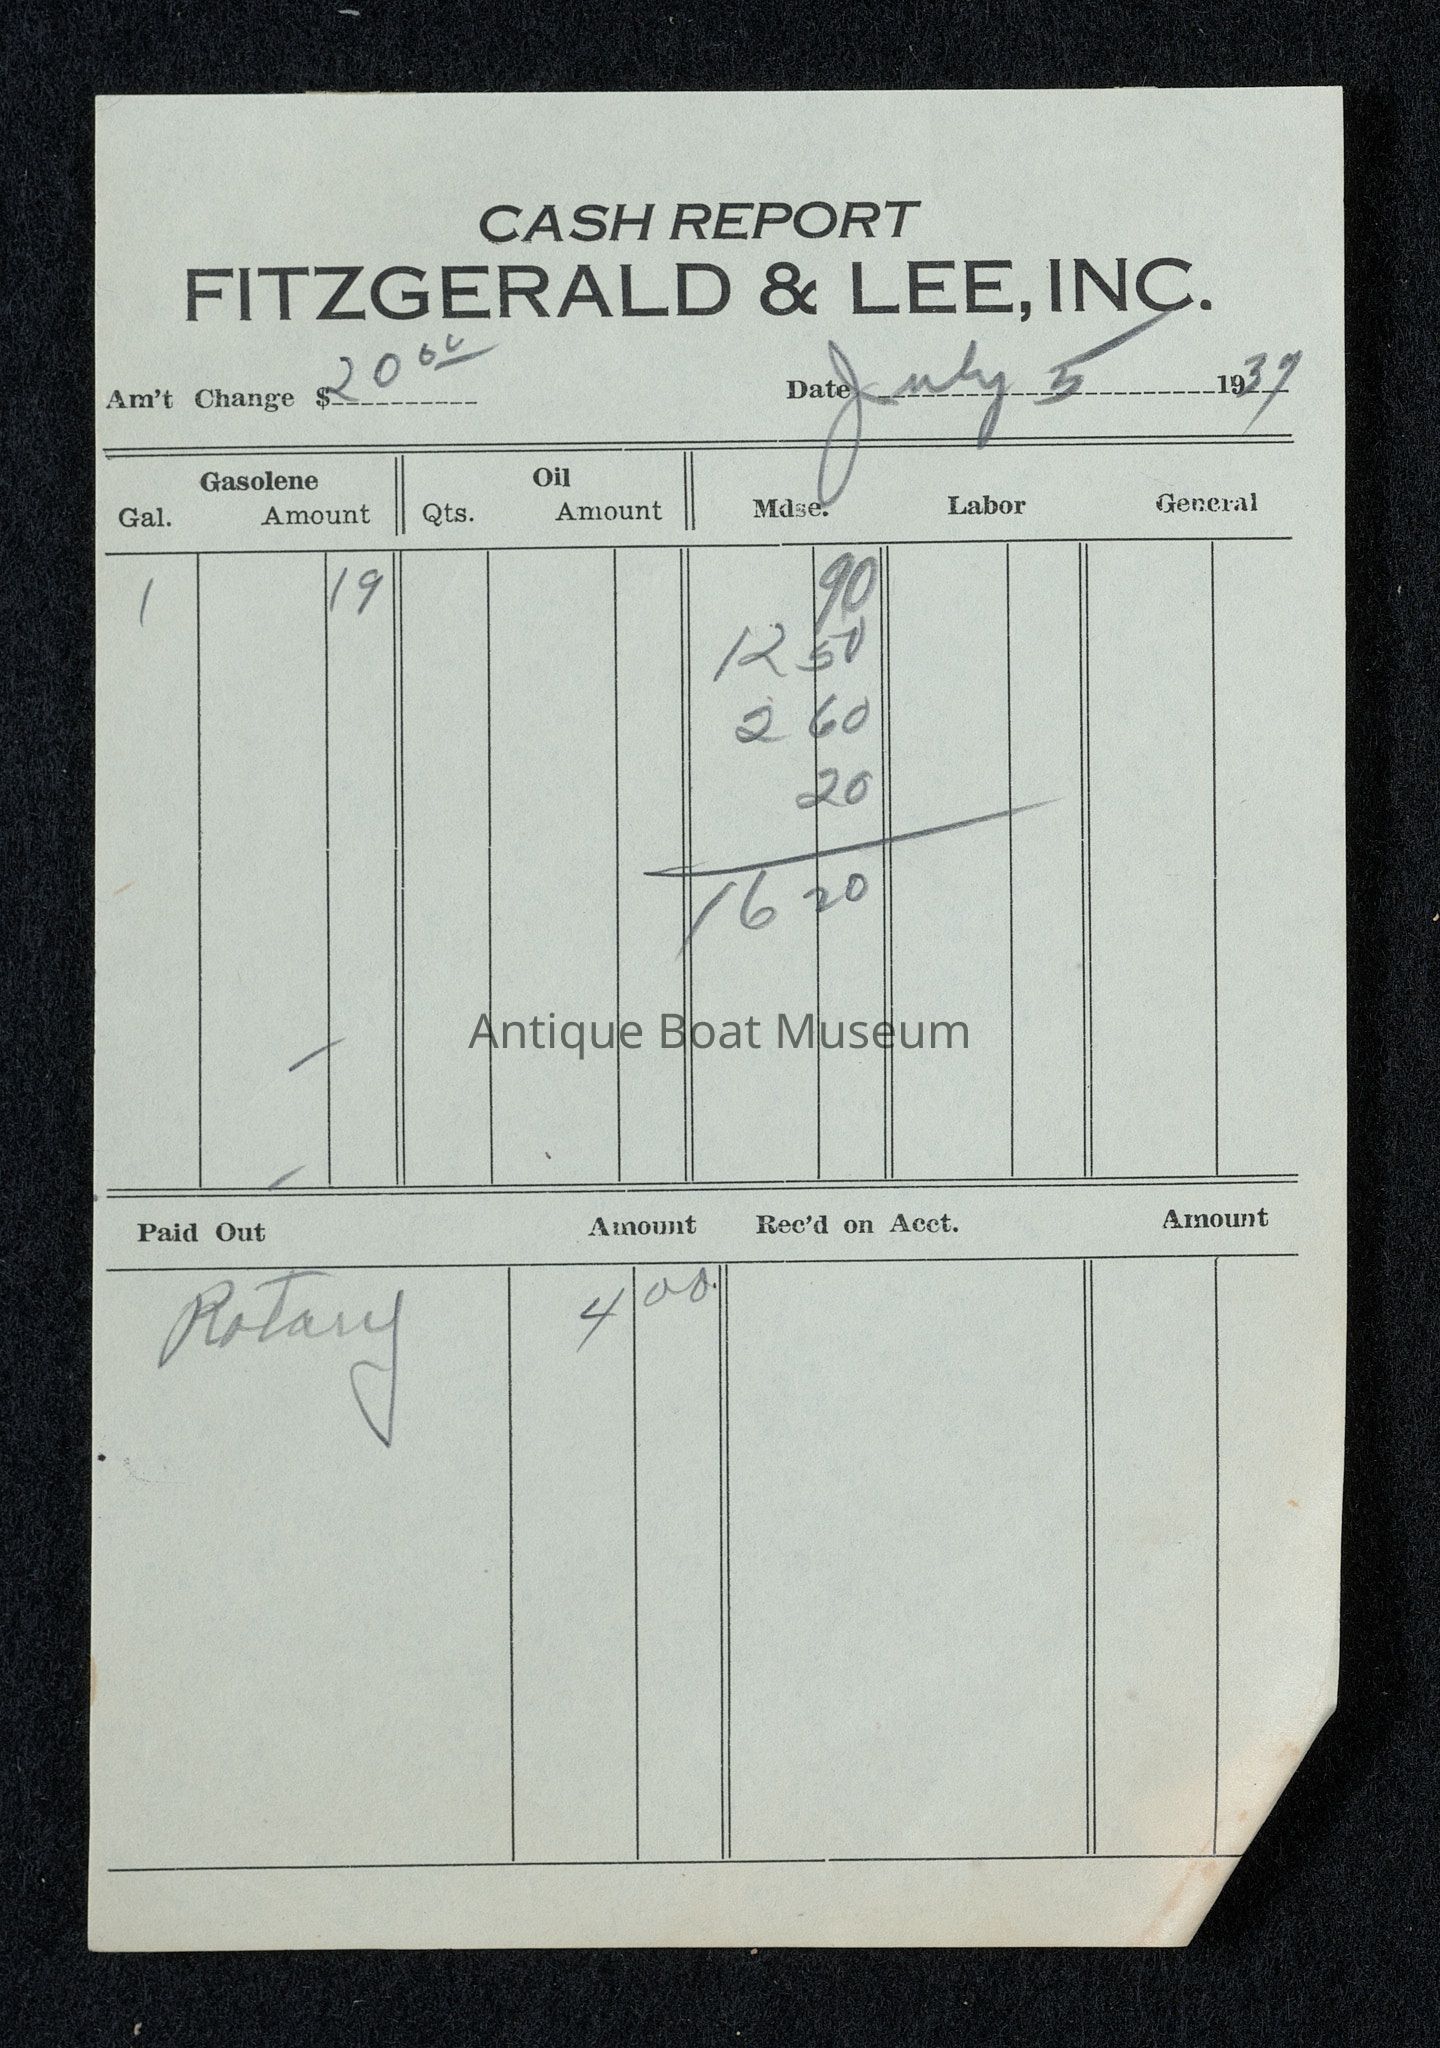 CASH REPORT
FITZGERALD & LEE, INC.
Am't Change $20 00 Date July 5 1937
Gasolene Oil
Gal. Amount Qts. Amount Mdse. Labor General
1 19 90
12 50
2 60
20
16 20
Antique Boat Museum
Paid Out Amount Rec'd on Acct. Amount
Rotary 4 00